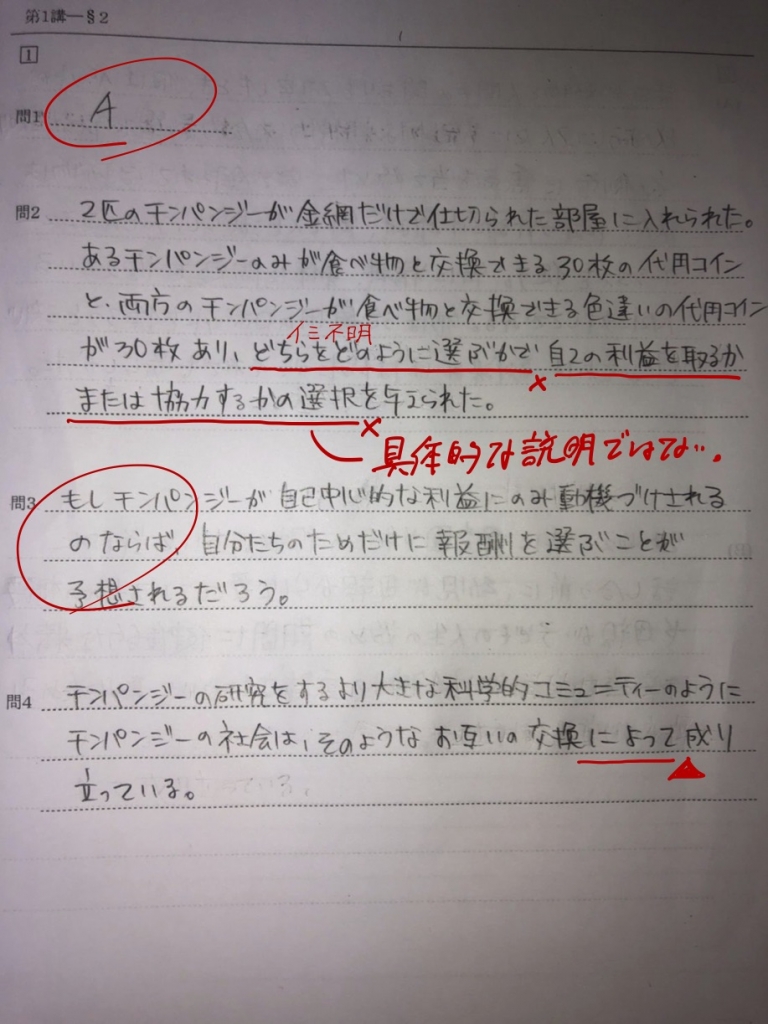 第1講―§2
1
問1 A
問2 2匹のチンパンジーが金網だけで仕切られた部屋に入れられた。
あるチンパンジーのみが食べ物と交換できる30枚の代用コイン
と、両方のチンパンジーが食べ物と交換できる色違いの代用コイン
イミ不明
が30枚あり、どちらをどのように選ぶかで自己の利益を取るか
または協力するかの選択を与えられた。
具体的な説明ではない。
問3 もしチンパンジーが自己中心的な利益にのみ動機づけされる
のならば、自分たちのためだけに報酬を選ぶことが
予想されるだろう。
問4 チンパンジーの研究をするより大きな科学的コミュニティーのように
チンパンジーの社会は、そのようなお互いの交換によって成り
立っている。